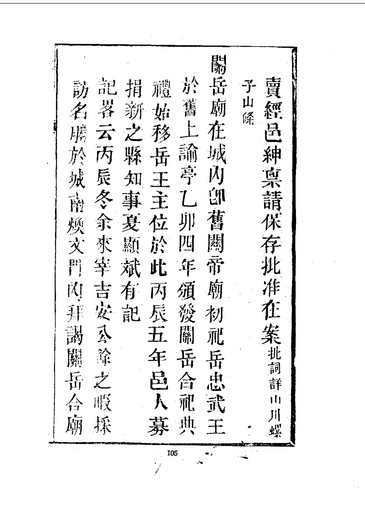 賣經邑紳稟請保存批准在案批詞詳山川螺
子山條
關岳廟在城內卽舊關帝廟初祀岳忠武王
於舊上諭亭乙卯四年頒發關岳合祀典
禮始移岳王主位於此丙辰五年邑人募
捐新之縣知事夏顯斌有記
記畧云丙辰冬余來宰吉安公餘之暇採
訪名勝於城南煥文門內拜謁關岳合廟
105